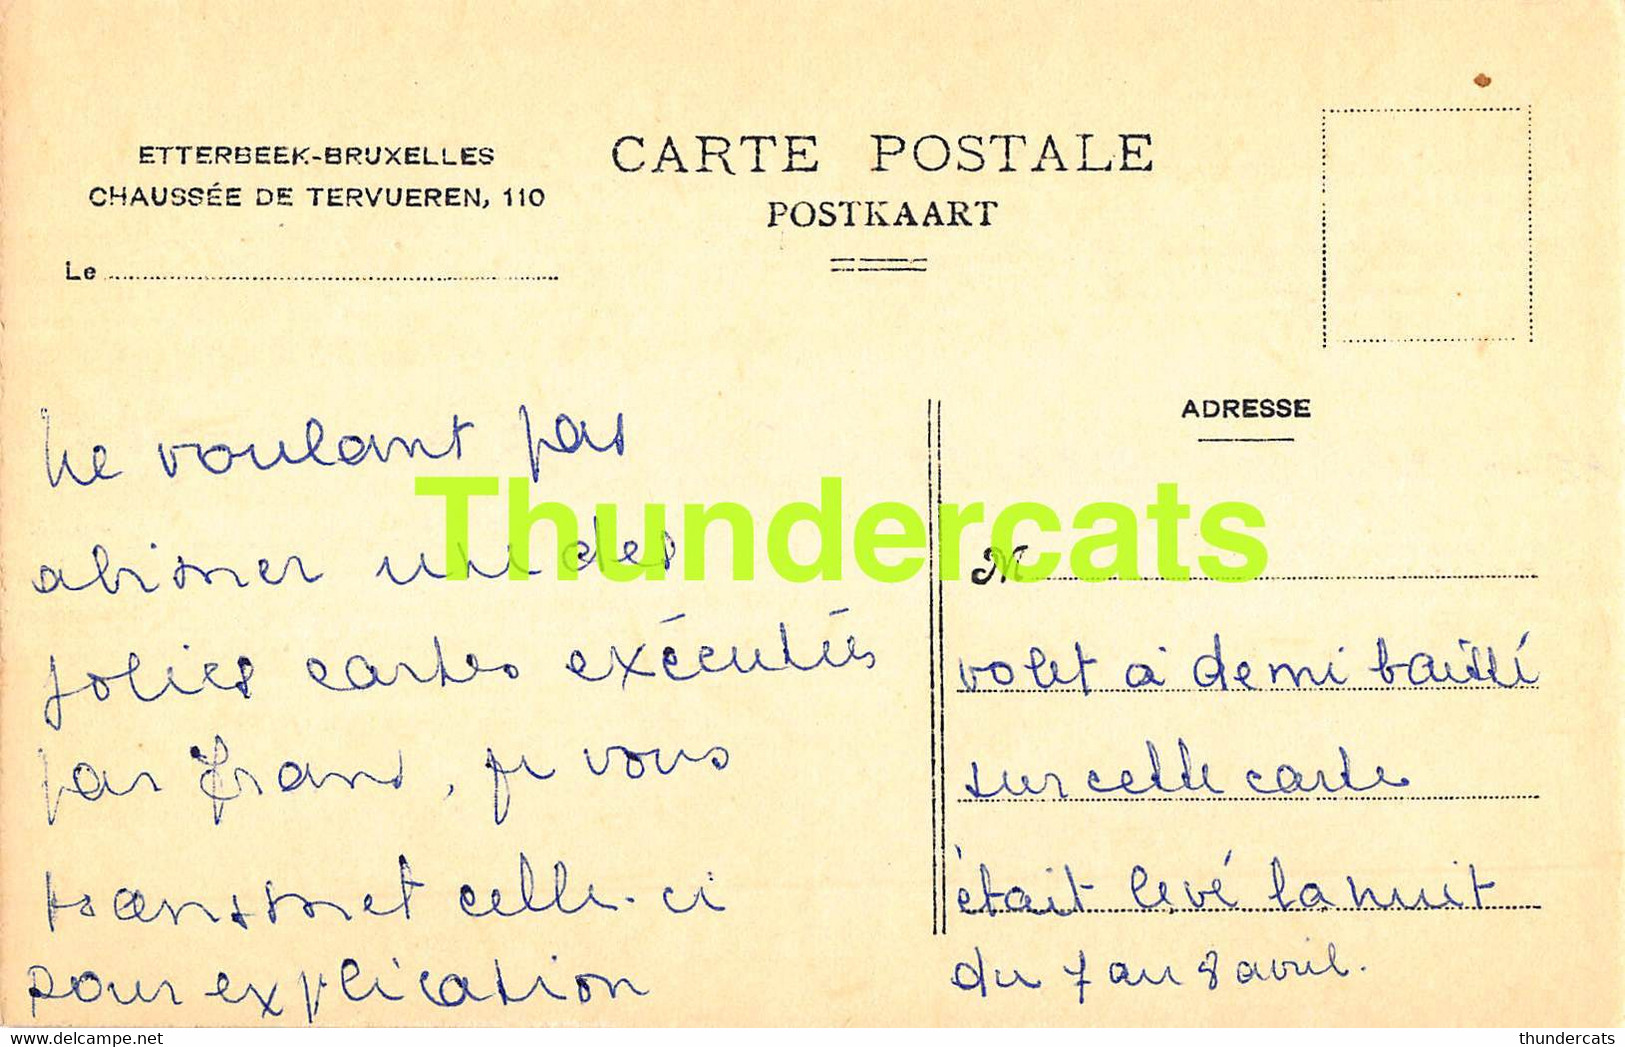 ETTERBEEK-BRUXELLES
CHAUSSÉE DE TERVUEREN, 110
Le
CARTE POSTALE
POSTKAART
ADRESSE
Ne voulant pas
abimer une des
jolies cartes exécutées
par Frans, je vous
transmet celle-ci
pour explication
M
volet à demi baissé
sur cette carte
était levé la nuit
du 7 au 8 avril.
Thundercats
thundercats